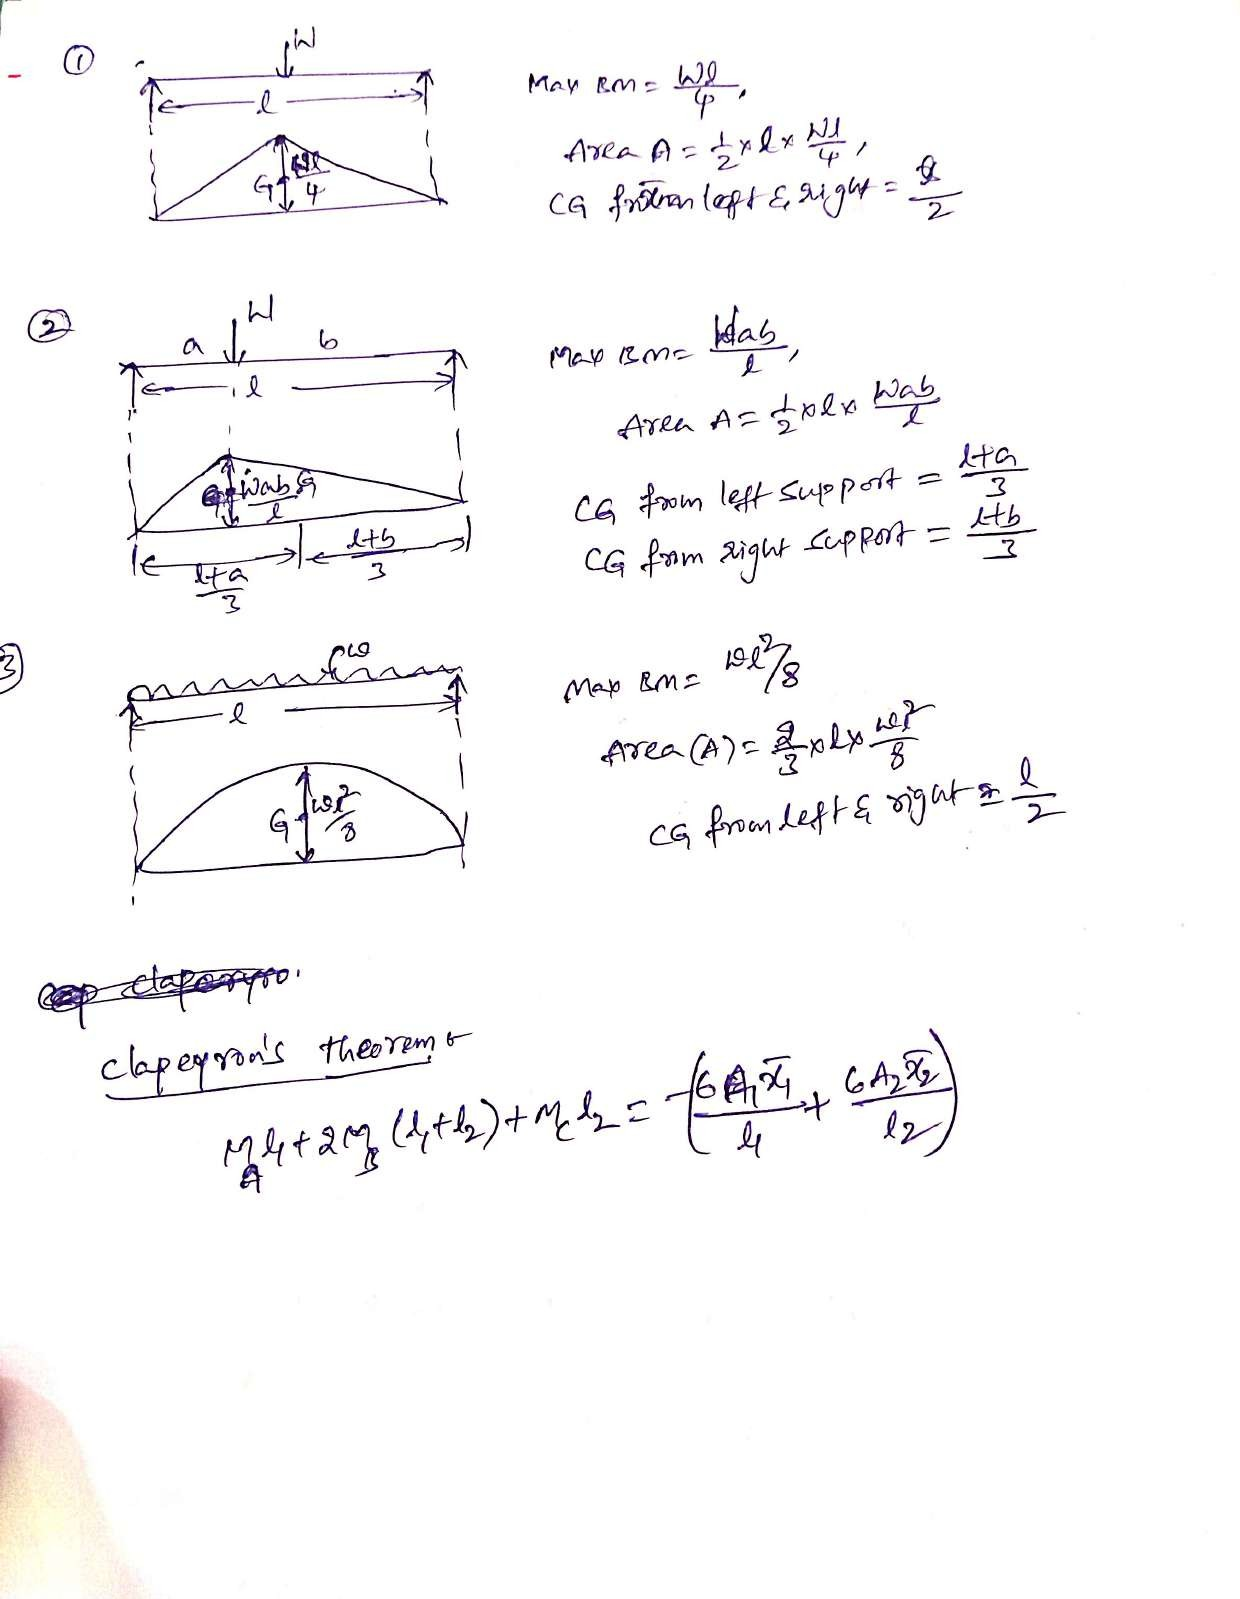 ①
W
l
G Wl/4
Max BM = Wl/4,
Area A = 1/2 x l x Wl/4,
CG from left & right = l/2
②
W
a b
l
Wab/l G
(l+a)/3 (l+b)/3
Max BM = Wab/l,
Area A = 1/2 x l x Wab/l
CG from left support = (l+a)/3
CG from right support = (l+b)/3
3
w
l
G wl²/8
Max BM = wl²/8
Area (A) = 2/3 x l x wl²/8
CG from left & right = l/2
clapeyron's theorem
M_A l₁ + 2M_B (l₁+l₂) + M_C l₂ = -(6A₁x̄₁/l₁ + 6A₂x̄₂/l₂)